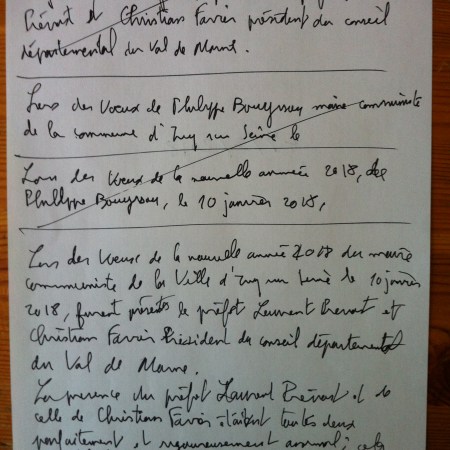 Prévost et Christian Favier président du conseil
départemental du Val de Marne.
Lors des Vœux de Philippe Bouyssou maire communiste
de la commune d'Ivry sur Seine le
Lors des Vœux de la nouvelle année 2018, de
Philippe Bouyssou, le 10 janvier 2018,
Lors des Vœux de la nouvelle année 2018 du maire
communiste de la Ville d'Ivry sur Seine le 10 janvier
2018, furent présents le préfet Laurent Prévost et
Christian Favier Président du conseil départemental
du Val de Marne.
La présence du préfet Laurent Prévost et de
celle de Christian Favier étaient toutes deux
parfaitement et rigoureusement